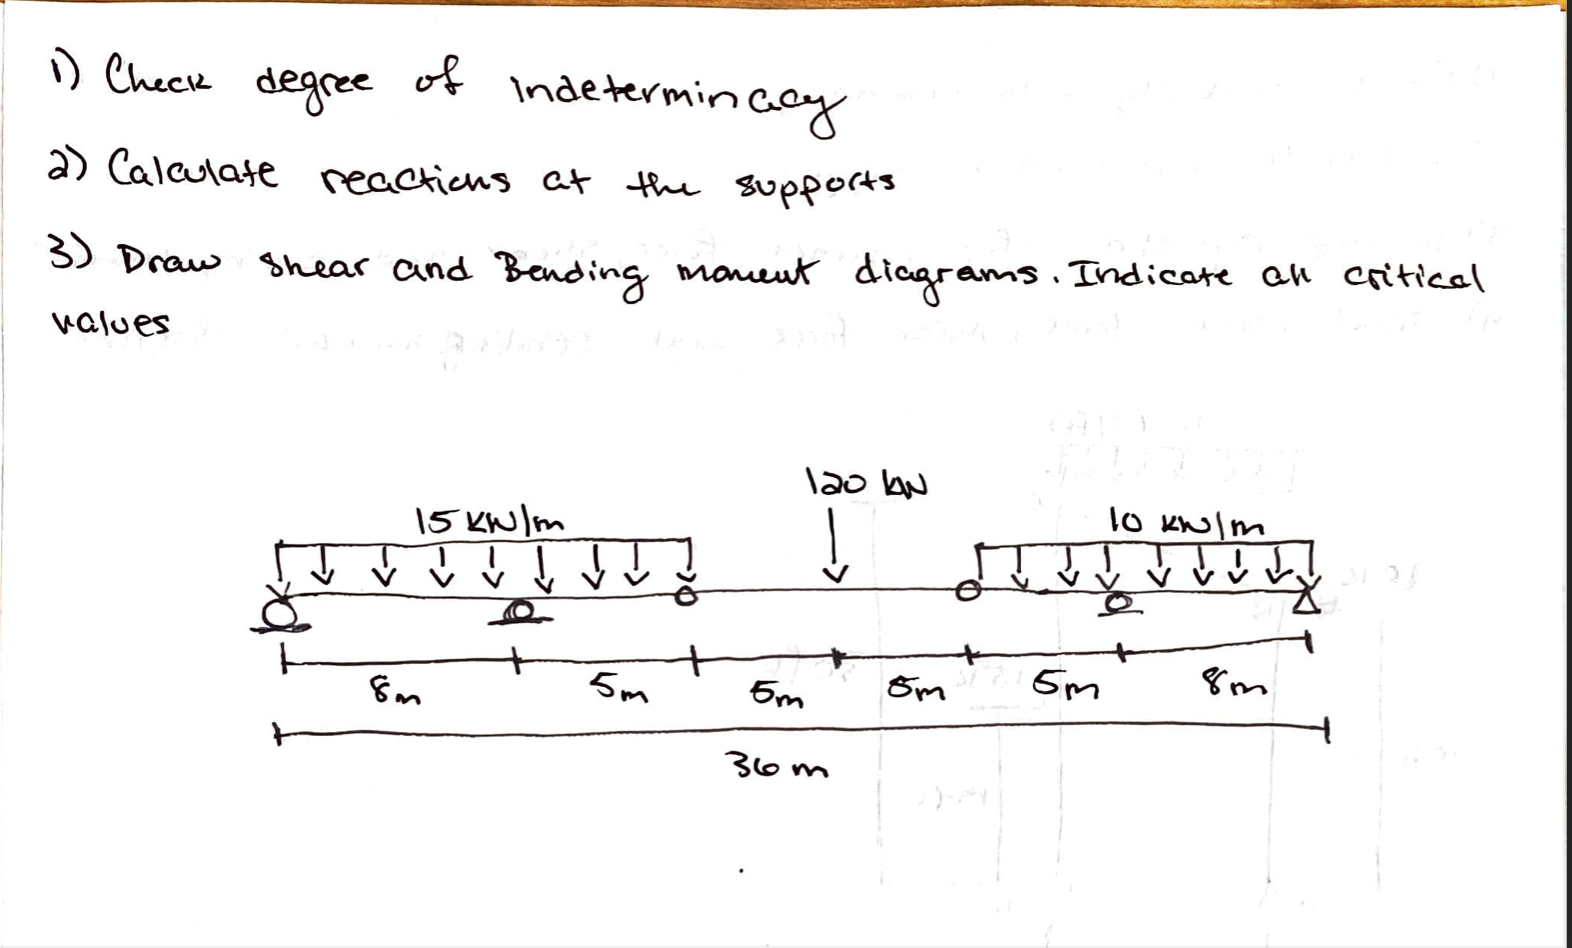 1) Check degree of indeterminacy
2) Calculate reactions at the supports
3) Draw shear and Bending moment diagrams. Indicate all critical
values
120 kN
15 kN/m
10 kN/m
8m 5m 5m 5m 5m 8m
36 m